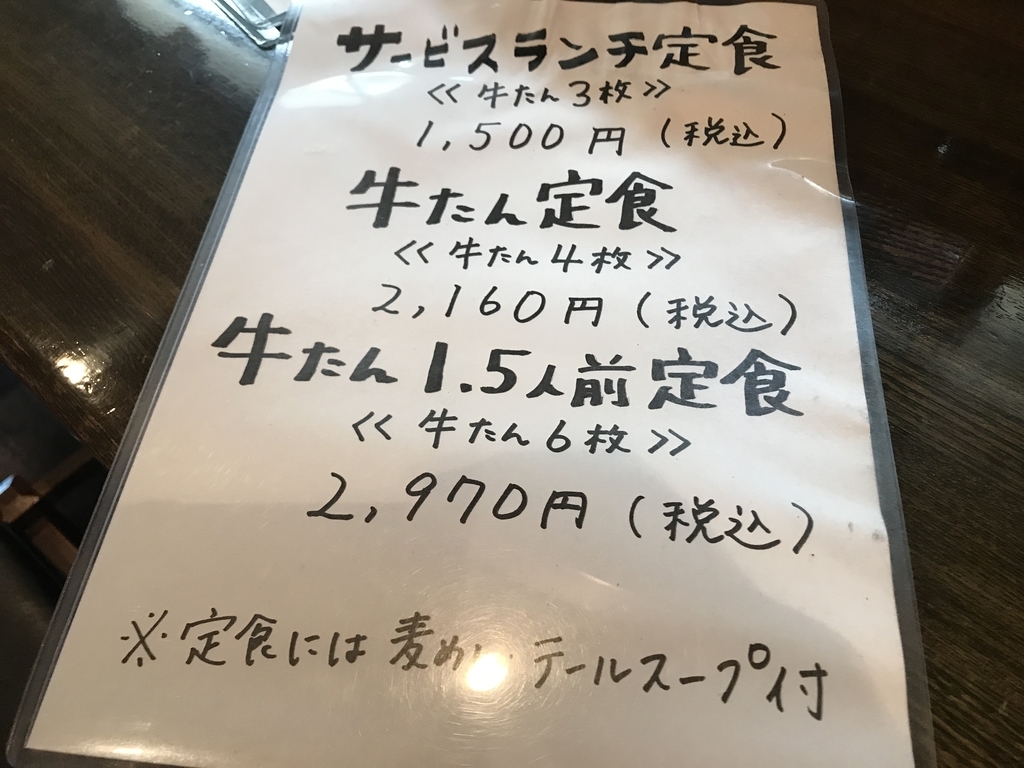 サービスランチ定食
≪牛たん3枚≫
1,500円(税込)
牛たん定食
≪牛たん4枚≫
2,160円(税込)
牛たん1.5人前定食
≪牛たん6枚≫
2,970円(税込)
※定食には麦めし テールスープ付